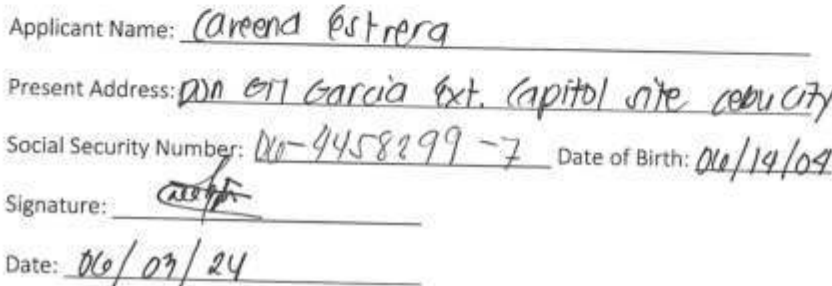 Applicant Name: Careena Estrera
Present Address: Don Gil Garcia Ext. Capitol site cebu city
Social Security Number: 06-4458299-7 Date of Birth: 06/14/04
Signature:
Date: 06/03/24